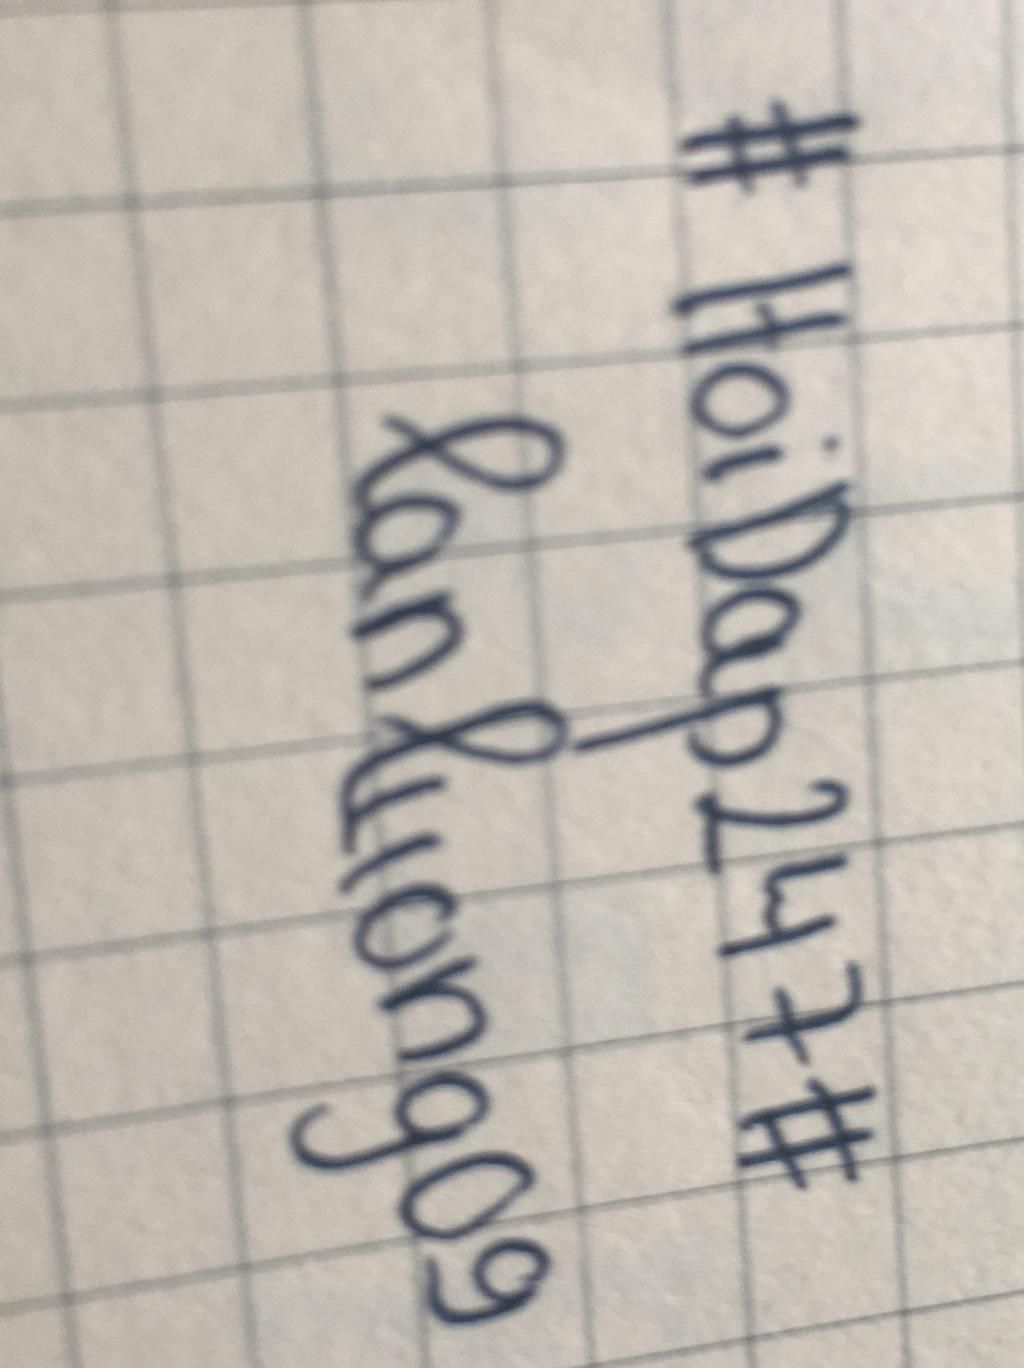 #HoiDap247#
lanluong09